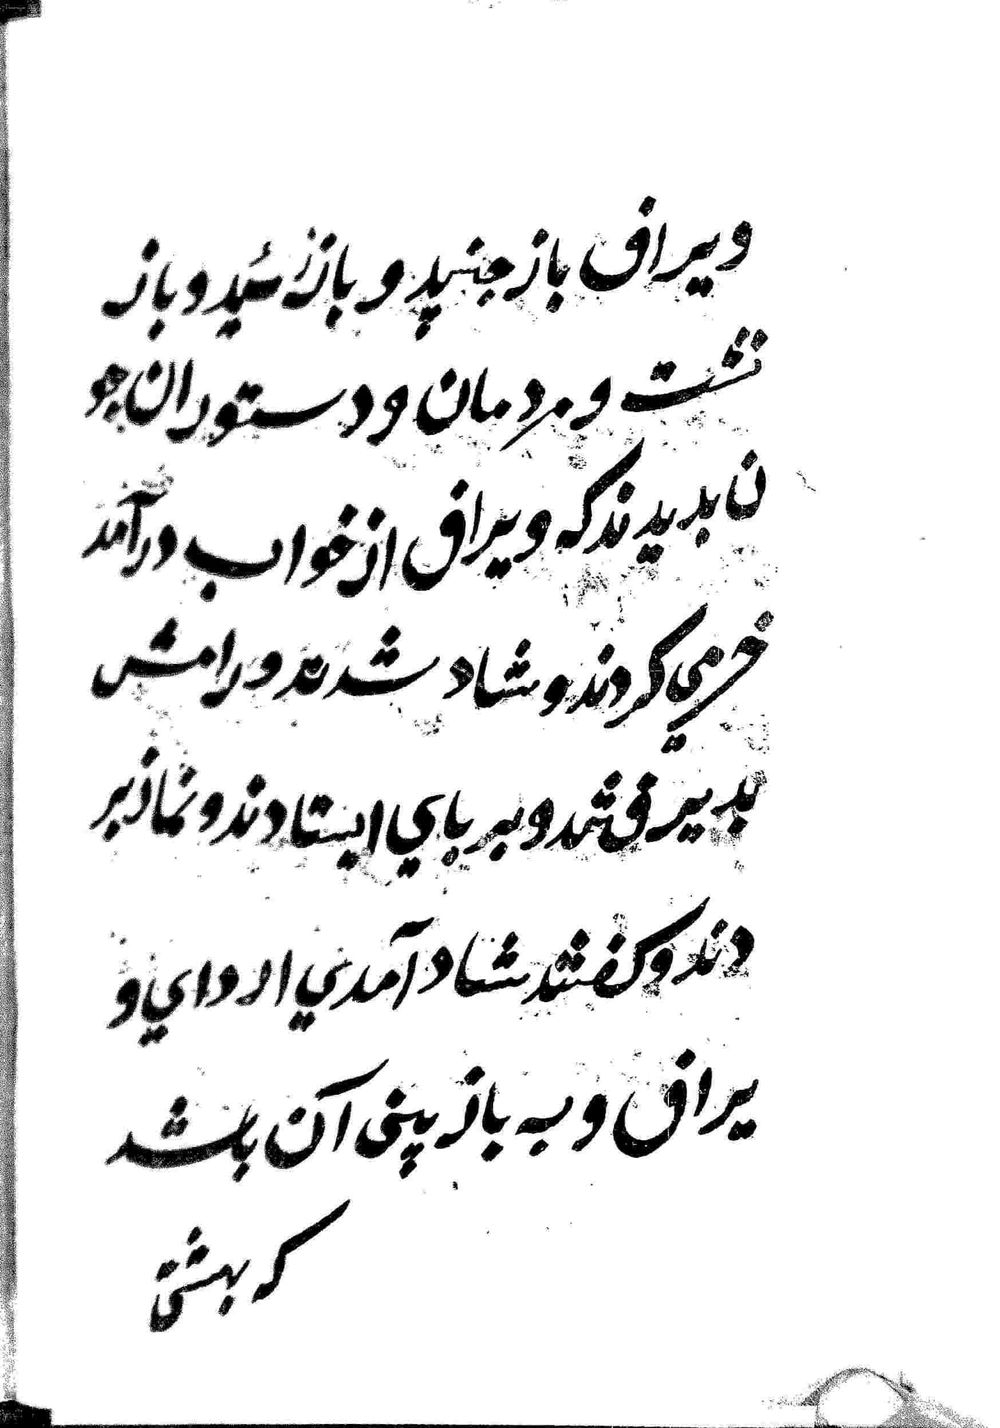 ویراف باز جنبید و باز رسید و باز
نشست و مردمان و دستوران چو
ن بدیدند که ویراف از خواب درآمد
خرمي کردند و شاد شدند و رامش
بدیرفتند و بر پاي ایستادند و نماز بر
دند و کفتند شاد آمدي اردای و
یراف و به باز پنی آن باشد
که بهشتی